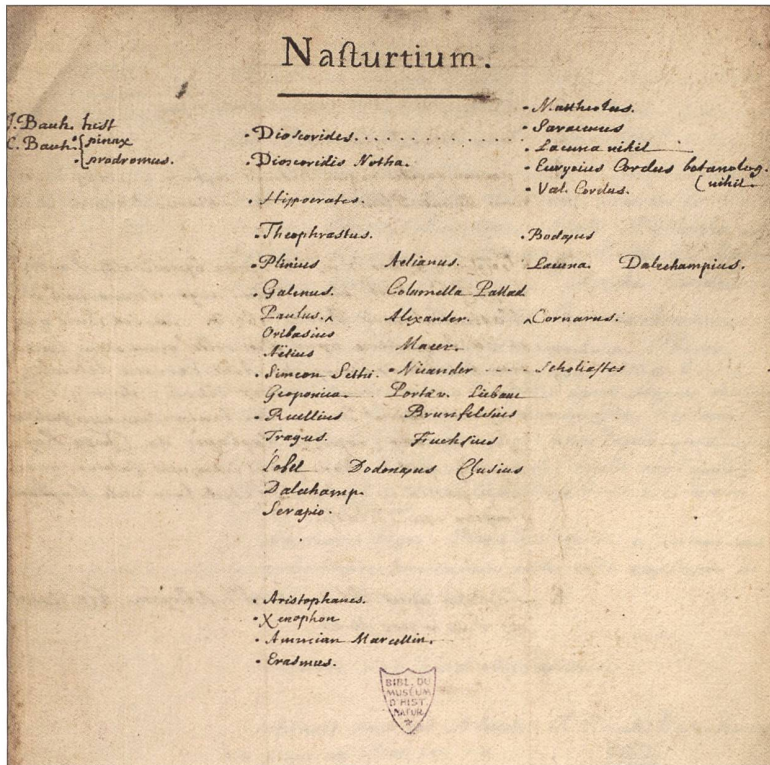 Naſturtium.
J. Bauh. hist
C. Bauh. { pinax
prodromus.
• Dioscorides. . . . . . . . . . . .
• Dioscoridis Notha.
• Hippocrates.
• Theophrastus.
• Plinius Aelianus.
• Galenus. Columella Pallad
Paulus. ^ Alexander.
Oribasius
Aëtius Macer.
• Simeon Sethi. • Nicander ---- Scholiastes
Geoponica. Porta v. Liebaut
• Ruellius Brunfelsius
Tragus. Fuchsius
Lobel Dodonæus Clusius
Dalechamp.
Serapio.
• Mattheolus.
• Saracenus
• Lacuna nihil
• Eurycius Cordus botanolog.
( nihil.
• Val. Cordus.
• Bodæus
Lacuna. Dalechampius.
^ Cornarus.
• Aristophanes.
• Xenophon
• Ammian Marcellin.
• Erasmus.
BIBL. DU
MUSÉUM
D'HIST.
NATUR.